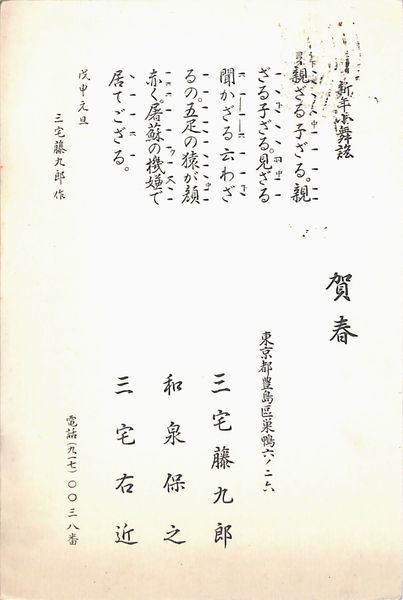 新年小舞謡
親ざる子ざる。親
ざる子ざる。見ざる
聞かざる云わざ
るの。五疋の猿が顔
赤く。屠蘇の機嫌で
居てござる。
戊申元旦
三宅藤九郎作
賀春
東京都豊島區巣鴨六ノ二六
三宅藤九郎
和泉保之
三宅右近
電話(九一七)〇〇三八番